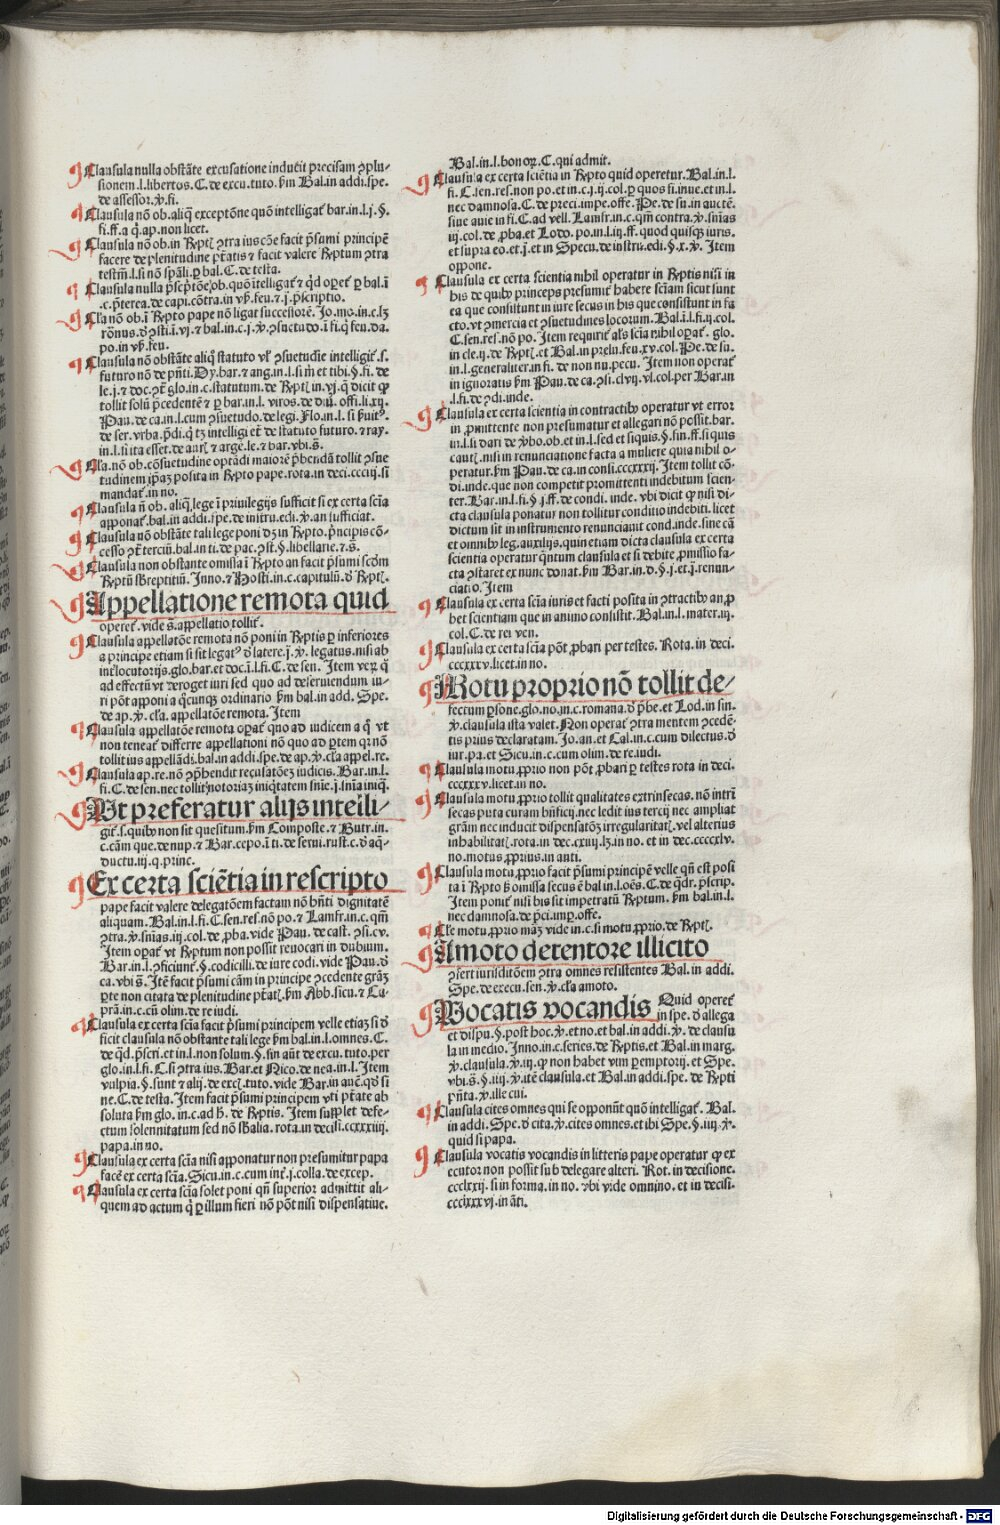 Clausula nulla obstāte excusatione inducit precisam ꝯplu-
sionem.l.libertos.C.de excu.tuto.ẜm Bal.in addi.spe.
de assessor.ꝟ.fi.
Clausula nō ob.aliq̄ exceptōne quō intelligat᷑ bar.in.l.j.§.
fi.ff.a q̄.ap.non licet.
Clausula nō ob.in Rꝭptꝭ ꝯtra ius cōe facit p̄sumi principē
facere de plenitudine ptatis ⁊ facit valere Rꝭptum ꝯtra
testm̄.l.si nō spāli.ꝑ bal.C.de testa.
Clausula nulla p̄scptōe ob.quō ītelligat᷑ ⁊ qͥd oꝑet᷑ ꝑ bal.ī
.c.p̄terea.de capi.cōtra.in vẜ.feu.⁊.j.p̄scriptio.
Cla nō ob.ī Rꝭpto pape nō ligat successorē.Jo.mo.in c.lꝫ
rōnus.ꝺ ꝯsti.ī.vj.⁊ bal.in c.j.ꝟ.ꝯsuetudo.ī fi.q̄ feu.da.
po.in vẜ.feu.
Clausula nō obstāte aliq̄ statuto vl' ꝯsuetudīe intelligit᷑.s.
futuro nō de pn̄ti.Dy.bar.⁊ ang.in.l.si m̄ et tibi.§.fi.de
le.j.⁊ doc.ꝯt̄ glo.in c.statutum.de Rꝭptꝭ in.vj.q̄ dicit ꝙ
tollit solū p̄cedentē ⁊ ꝑ bar.in.l. viros.de diu. offi.li.xij.
Pau.de ca.in.l.cum ꝯsuetudo.de legi.Flo.in.l.si ẜuitꝰ.
de ser.vrba.p̄di.q̄ tꝫ intelligi et̄ de statuto futuro.⁊ ray.
in.l.si ita esset.de aurꝭ ⁊ arge.le.⁊ bar.vbi.s̄.
Cla.nō ob.cōsuetudine optādi maiorē p̄bendā tollit ꝯsue
tudinem ip̄aꝫ posita in Rꝭpto pape.rota.in deci.ccciij.si
mandat᷑.in no.
Clausula n̄ ob.aliq̄ lege ī priuilegijs sufficit si ex certa sciā
apponat᷑.bal.in addi.spe.de instru.edi.ꝟ.an sufficiat.
Clausula nō obstāte tali lege poni dꝫ in Rꝭpto.p̄ncipis cō-
cesso ꝯt̄ terciū.bal.in ti.de pac.ꝯst.§.libellarie.⁊.s̄.
Clausula non obstante omissa ī Rꝭpto an facit p̄sumi scdm
Rꝭptū sbreptitiū.Inno.⁊ Hosti.in.c.capitulū.ꝺ Rꝭptꝭ.
Appellatione remota quid
operet᷑.vide s̄.appellatio tollit᷑.
Clausula appellatōe remota nō poni in Rꝭptis ꝑ inferiores
a principe etiam si sit legatꝰ ꝺ latere.j.ꝟ. legatus.nisi ab
int̄locutorijs.glo.bar.et doc.ī.l.fi.C.de sen. Item verꝝ q̄
ad effectū vt ꝺeroget iuri sed quo ad deseruiendum iu-
ri pōt apponi a q̄cunqꝫ ordinario ẜm bal.in add. Spe.
de ap.ꝟ. cla. appellatōe remota. Item
Clausula appellatōe remota oꝑat᷑ quo ad iudicem a q̄ vt
non teneat᷑ differre appellationi nō quo ad ꝑtem qꝛ nō
tollit ius appellādi.bal.in addi.spe.de ap.ꝟ.cla appel.re.
Clausula ap.re.nō ꝯp̄hendit recusatōeꝫ iudicis. Bar.in.l.
fi.C.de sen.nec tollit notoriaꝫ iniq̄tatem sn̄ie.j.sn̄ia iniq̄.
Vt preferatur alijs intelli-
git᷑.s.quibꝰ non sit quesitum.ẜm Composte.⁊ Butr.in.
c.cām que.de nup.⁊ Bar.cepo.ī ti.de serui.rust.c.ꝺ aq̄-
ductu.iij.q.princ.
Ex certa sciētia in rescripto
pape facit valere delegatōem factam nō hn̄ti dignitatē
aliquam.Bal.in.l.fi.C.sen.res.nō po.⁊ Lamfr.in c.qm̄
ꝯtra.ꝟ.sn̄ias.iij.col.de ꝓba.vide Pau.de cast.ꝯsi.cv.
Item oꝑat᷑ vt Rꝭptum non possit reuocari in dubium.
Bar.in.l.ꝯficiunt᷑.§.codicilli.de iure codi.vide Pau.ꝺ
ca.vbi s̄.Itē facit p̄sumi cām in principe ꝯcedente grāꝫ
ꝑte non citata de plenitudine ptatꝭ ẜm Abb.sicu.⁊ Ca-
prā.in.c.cū olim.de re iudi.
Clausula ex certa sciā facit p̄sumi principem velle etiaꝫ si ꝺ
ficit clausula nō obstante tali lege ẜm bal.in.l.omnes.C.
de q̄d.p̄scri.et in.l.non solum.§.sin aūt de excu.tuto.per
glo.in.l.fi.C.si ꝯtra ius.Bar.et Nico.de nea.in.l. Item
vulpia.§.sunt ⁊ alij.de excꝭ.tuto.vide Bar.in auē.qꝺ si
ne.C.de testa.Item facit p̄sumi principem vti ptate ab
soluta ẜm glo.in c.ad h̄.de Rꝭptis. Item supplet defe-
ctum solennitatum sed nō sb̄alia.rota.in decisi.ccxxxiij.
papa.in no.
Clausula ex certa sciā nisi apponatur non presumitur papa
facē ex certa sciā.Sicu.in.c.cum int̄.j.colla.de excep.
Clausula ex certa sciā solet poni qn̄ superior admittit ali-
quem ad actum q̄ ꝑ illum fieri nō pōt nisi dispensatiue.
Bal.in.l.honoꝝ.C.qui admit.
Clausula ex certa sciētia in Rꝭpto quid operetur.Bal.in.l.
fi.C.sen.res.non po.et in.c.j.ij.col.ꝑ quos fi.inue.et in.l.
nec damnosa.C.de preci.impe.offe.Pe.de su.in auctē.
siue auie in fi.C.ad vell. Lamfr.in.c.qm̄ contra.ꝟ.sn̄ias
iij.col.de ꝓba.et Lodo.po.in.l.ij.ff.quod quisqꝫ iuris.
et supra eo.et.j.et in Specu.de instru.edi.§.x.ꝟ. Item
oppone.
Clausula ex certa scientia nihil operatur in Rꝭptis nisi in
his de quibꝰ princeps presumit᷑ habere sciam sicut sunt
ea que consistunt in iure secus in his que consistunt in fa
cto.vt ꝯmercia et ꝯsuetudines locorum.Bal.ī.l.fi.ij.col.
C.sen.res.nō po. Item requirit᷑ als̄ scia nihil oꝑat᷑. glo.
in cle.ij.de Rꝭptꝭ.et Bal.in prelu.feu.xv.col.Pe.de su.
in.l.generaliter.in fi.de non nu.pecu. Item non operat᷑
in ignoratis ẜm Pau.de ca.ꝯsi.clvij.vl.col.per Bar.in
.l.fi.de ꝯdi.inde.
Clausula ex certa scientia in contractibꝰ operatur vt error
in ꝓmittente non presumatur et allegari nō possit.bar.
in.l.si dari de ꝟbo.ob.et in.l.sed et siquis.§.sin.ff.si quis
cautꝭ.nisi in renunciatione facta a muliere quia nihil o-
peratur.ẜm Pau.de ca.in consi.ccxxxij. Item tollit cō-
di.inde.que non competit promittenti indebitum scien-
ter.Bar.in.l.fi.§.j.ff.de condi.inde.vbi dicit ꝙ nisi di-
cta clausula ponatur non tollitur conditio indebiti.licet
dictum sit in instrumento renunciauit cond.inde.sine cā
et omnibꝰ leg.auxilijs.quin etiam dicta clausula ex certa
scientia operatur q̄ntum clausula et si debite ꝓmissio fa-
cta ꝯstaret ex nunc donat.ẜm Bar.in.d.§.j.et.j.renun-
ciatio. Item
Clausula ex certa sciā iuris et facti posita in ꝯtractibꝰ an ꝓ
bet scientiam que in animo consistit.Bal.in.l.mater.iij.
col.C.de rei ven.
Clausula ex certa sciā pōt ꝓbari per testes. Rota.in deci.
ccccxxv.licet.in no.
Motu proprio nō tollit de-
fectum ꝑsone.glo.no.in.c.romana.ꝺ ꝓbe.et Lod.in sin.
ꝟ.clausula ista valet.Non operat᷑ ꝯtra mentem ꝯcedē-
tis prius declaratam.Jo.an.et Cal.in.c.cum dilectus.ꝺ
iur.pa.et Sicu.in.c.cum olim.de re.iudi.
Clausula motu ꝓprio non pōt ꝓbari ꝑ testes rota in deci.
ccccxxv.licet.in no.
Clausula motu ꝓprio tollit qualitates extrinsecas.nō intrī
secas puta curam bn̄ficij.nec ledit ius tercij nec ampliat
grām nec inducit dispensatōꝫ irregularitatꝭ.vel alterius
inhabilitatꝭ.rota.in dec.cxiiij.lꝫ.in no.et in dec.ccccxlv.
no.motus ꝓprius.in anti.
Clausula motu ꝓprio facit p̄sumi principē velle qn̄ est posi
ta ī Rꝭpto ꝟ omissa secus ē bal.in.l.oēs.C.de q̄dr.p̄scrip.
Item ponit᷑ nisi bis sit impetratū Rꝭptum.ẜm bal.in.l.
nec damnosa.de p̄ci.imꝑ.offe.
Cle motu ꝓprio māꝫ vide in.c.si motu ꝓprio.de Rꝭptꝭ.
Amoto detentore illicito
ꝯfert iurisditōem ꝯtra omnes resistentes Bal.in addi.
Spe.de execu.sen.ꝟ.cla amoto.
Vocatis vocandis Quid operet᷑
in spe.ꝺ allega
et dispu.§.post hoc.ꝟ.et no.et bal.in addi.ꝟ.de clausu
la in medio.Inno.in.c.series.de Rꝭptis.et Bal.in marg.
ꝟ.clausula.ꝟ.iij.ꝙ non habet vim ꝑemptorij.et Spe.
vbi.s̄.§.iiij.ꝟ.itē clausula.et Bal.in addi.spe.de Rꝭpti
pn̄ta.ꝟ.ille cui.
Clausula cites omnes qui se opponūt quō intelligat᷑. Bal.
in addi.Spe.ꝺ cita.ꝟ.cites omnes.et ibi Spe.§.iiij.ꝟ.
quid si papa.
Clausula vocatis vocandis in litteris pape operatur ꝙ ex
ecutor non possit sub delegare alteri. Rot.in decisione.
ccclxxij.si in forma.in no. vbi vide omnino.et in decisi.
ccclxxxvj.in āti.
Digitalisierung gefördert durch die Deutsche Forschungsgemeinschaft - DFG